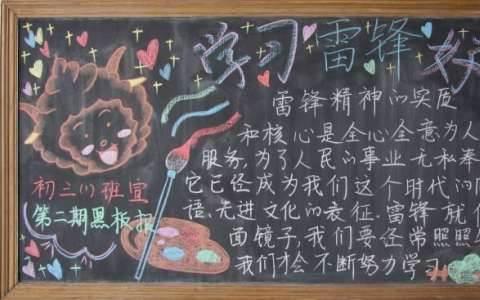 学习雷锋好
雷锋精神的实质
和核心是全心全意为人
服务,为了人民的事业无私奉
它已经成为我们这个时代的同
语.先进文化的表征.雷锋就
面镜子,我们要经常照照
我们才会不断努力学习.
初三(1)班宣
第二期黑板报